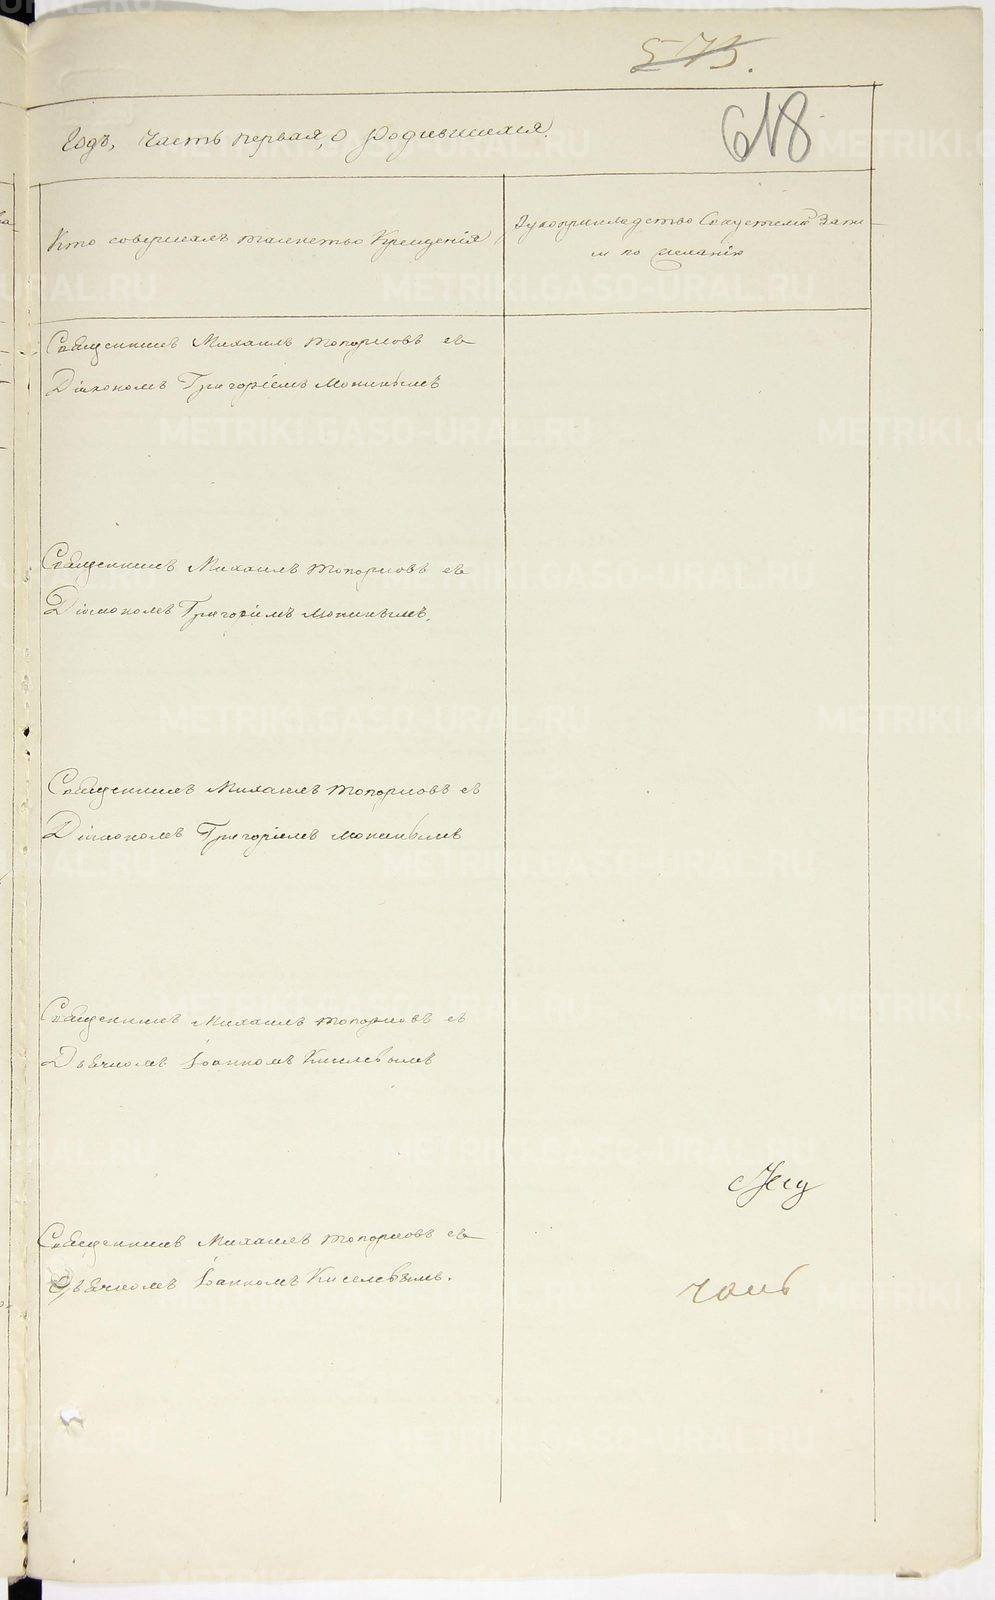 575.
618
Годъ, часть первая, о родившихся.
Кто совершалъ таинство Крещенія
Рукоприкладство Свидѣтелей Запи-
си по желанію
Священникъ Михаилъ Топорковъ съ
Діакономъ Григоріемъ
Священникъ Михаилъ Топорковъ съ
Діакономъ Григоріемъ
Священникъ Михаилъ Топорковъ съ
Діакономъ Григоріемъ
Священникъ Михаилъ Топорковъ съ
Дьячкомъ Іоанномъ Киселевымъ
Священникъ Михаилъ Топорковъ съ
Дьячкомъ Іоанномъ Киселевымъ.
METRIKI.GASO-URAL.RU